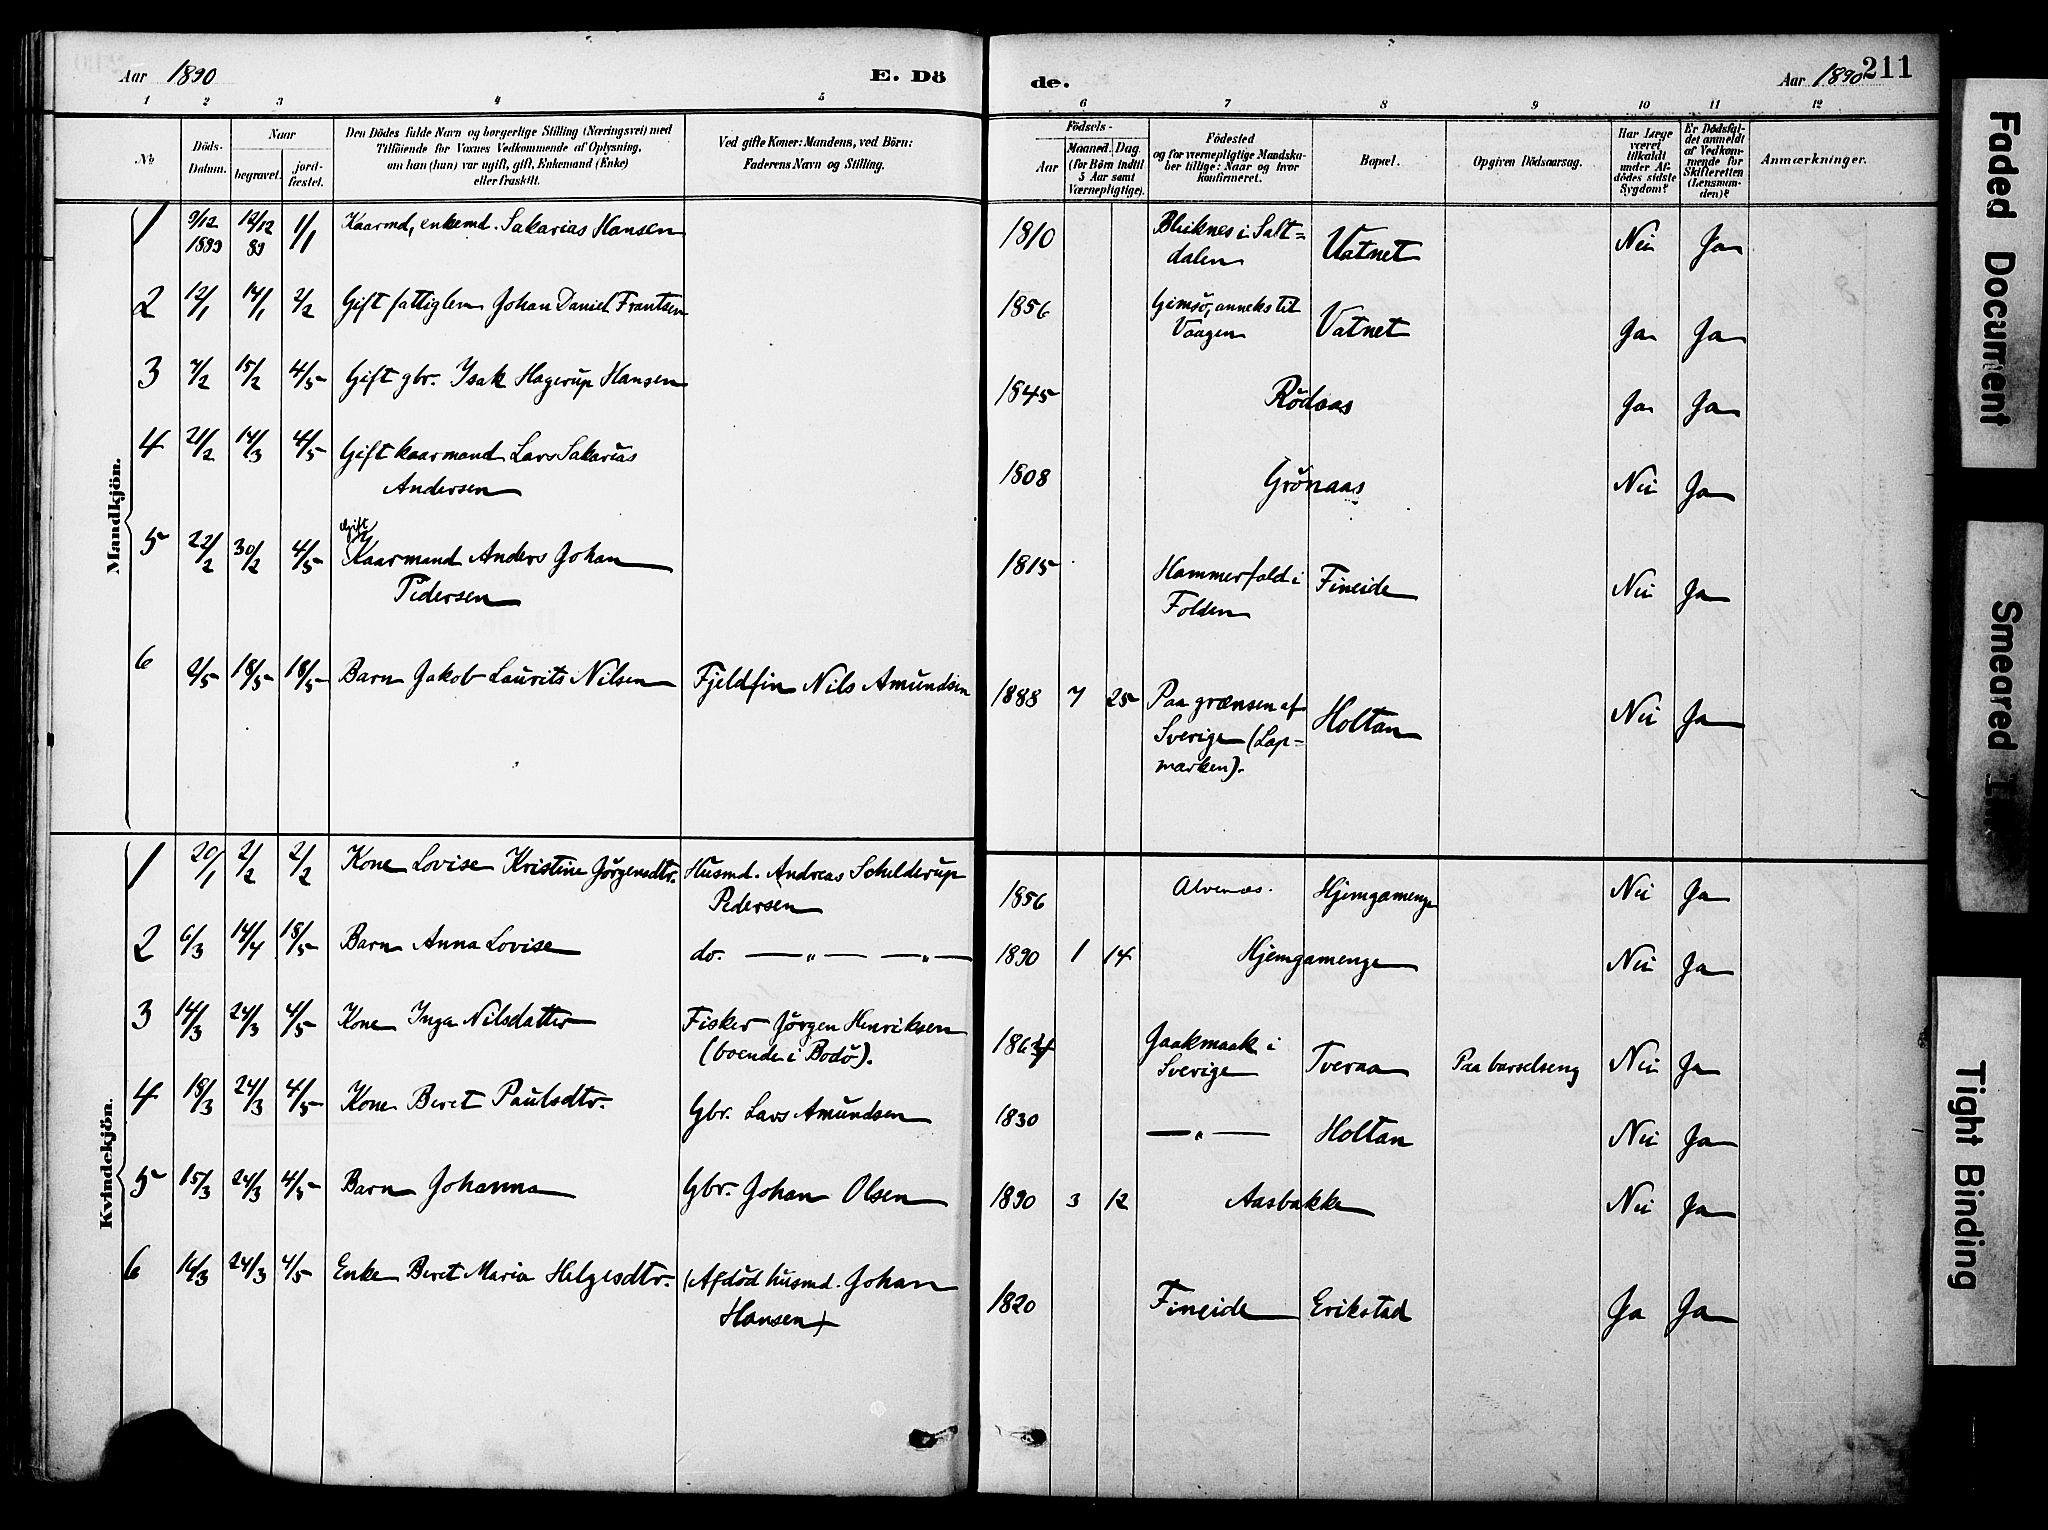 Aar 1890 E. Dö
1 2 3 4 5
No Döds-Datum. Naar begravet. jordfæstet. Den Dödes fulde Navn og borgerlige Stilling (Næringsvei) med Tilföiende for Voxnes Vedkommende af Oplysning, om han (hun) var ugift, gift, Enkemand (Enke) eller fraskilt. Ved gifte Koner: Mandens, ved Börn: Faderens Navn og Stilling.
de. Aar 1890 211
6 7 8 9 10 11 12
Födsels- Aar Maaned. Dag. (for Börn indtil 5 Aar samt Værnepligtige). Födested og for værnepligtige Mandskaber tillige: Naar og hvor konfirmeret. Bopæl. Opgiven Dödsaarsag. Har Læge været tilkaldt under Afdödes sidste Sygdom? Er Dödsfaldet anmeldt af Vedkommende for Skifteretten (Lensmanden)? Anmærkninger.
Mandkjön.
1 9/12 1889 12/12 89 1/1 Kaarmd, enkemd. Sakarias Hansen 1810 Bleiknes i Saltdalen Vatnet Nei Ja
2 12/1 14/1 2/2 Gift fattiglem Johan Daniel Frantsen 1856 Gimsø, anneks til Vaagen Vatnet Ja Ja
3 7/2 15/2 4/5 Gift gbr. Isak Hagerup Hansen 1845 Rødaas Ja Ja
4 21/2 14/3 4/5 Gift kaarmand Lars Sakarias
Andersen 1808 Grønaas Nei Ja
5 22/2 30/2 4/5 Gift Kaarmand Anders Johan
Pedersen 1815 Hammerfald i Folden Fineide Nei Ja
6 2/5 18/5 18/5 Barn Jakob Laurits Nilsen Fjeldfin Nils Amundsen 1888 7 25 Paa grænsen af
Sverige (Lap=
marken). Holtan Nei Ja
Kvindekjön.
1 20/1 2/2 2/2 Kone Lovise Kristine Jørgensdtr. Husmd. Andreas Schelderup
Pedersen 1856 Alvenes. Hjemgamenge Nei Ja
2 6/3 14/4 18/5 Barn Anna Lovise do. — „ — — „ — 1890 1 14 Hjemgamenge Nei Ja
3 14/3 24/3 4/5 Kone Inga Nilsdatter Fisker Jørgen Henriksen
(boende i Bodø). 1864 Jaakmaak i
Sverige Tveraa Paa barselseng Nei Ja
4 18/3 24/3 4/5 Kone Beret Paulsdtr. Gbr. Lars Amundsen 1830 — „ — Holtan Nei Ja
5 15/3 24/3 4/5 Barn Johanna Gbr. Johan Olsen 1890 3 12 Aasbakke Nei Ja
6 16/3 24/3 4/5 Enke Beret Maria Helgesdtr. (Afdød husmd. Johan
Hansen) 1820 Fineide Erikstad Ja Ja
Faded Document
Smeared Ink
Tight Binding